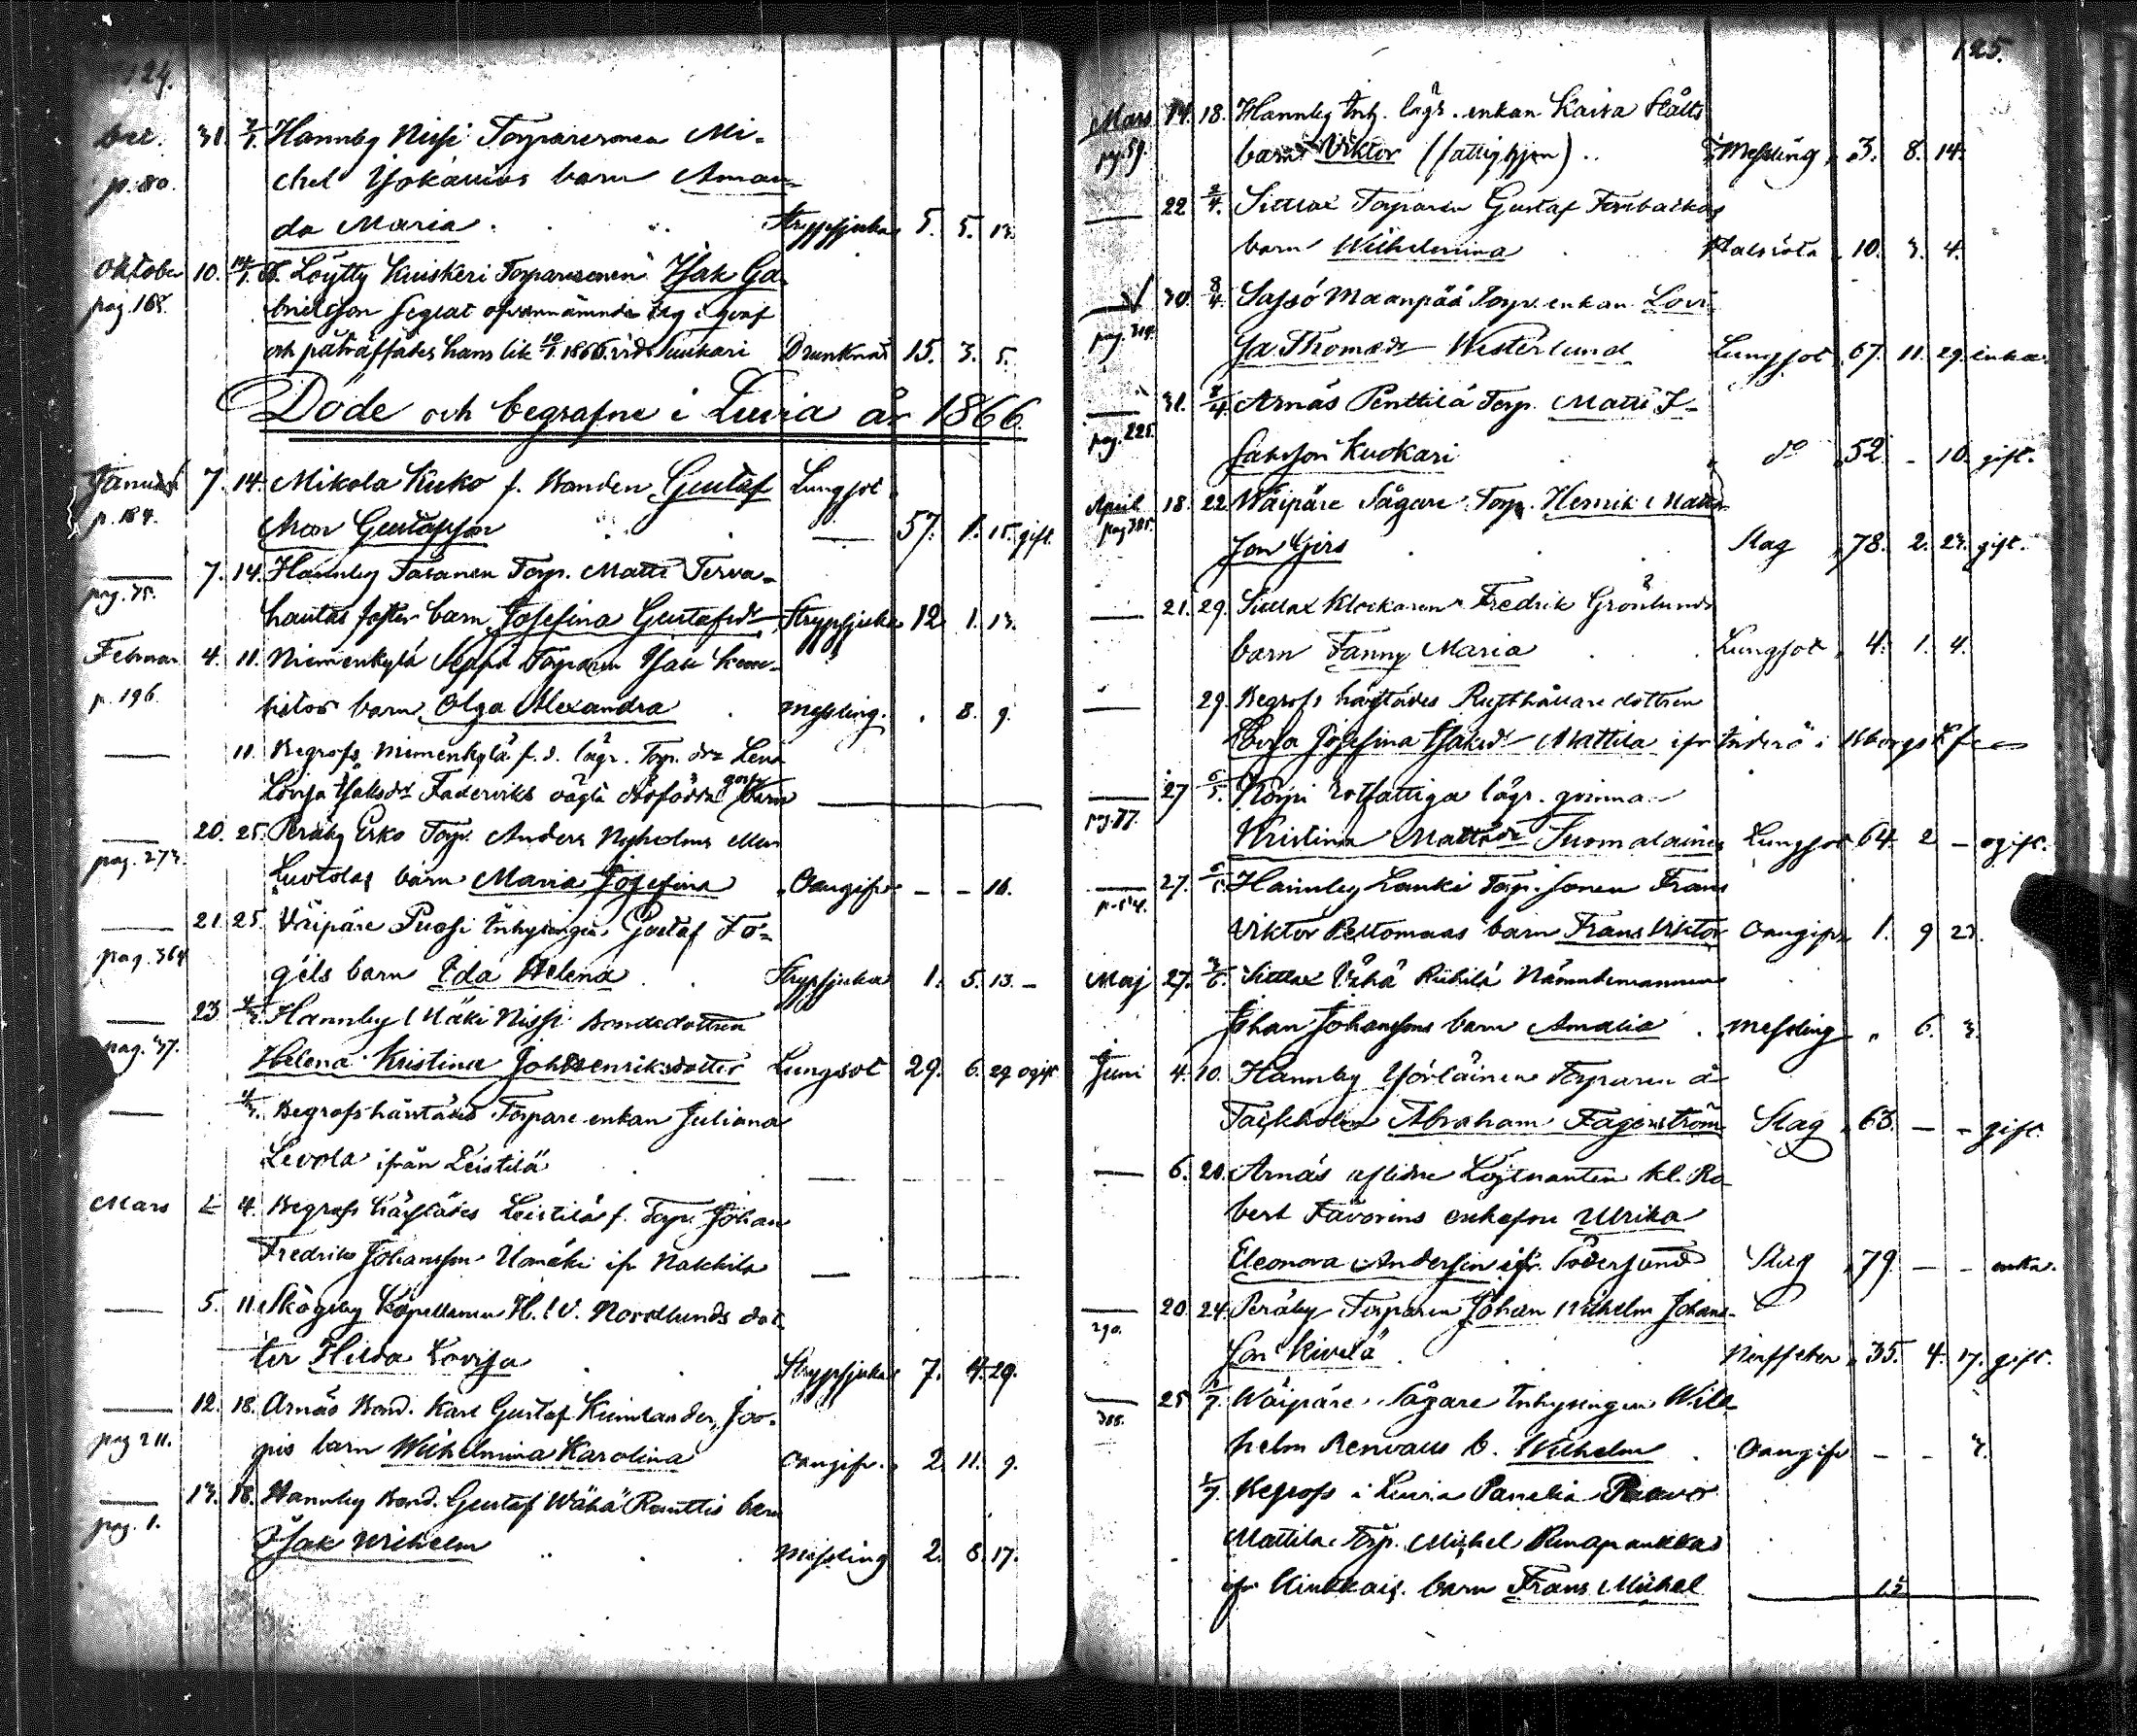 124.
Dec. 31. 7/1. Hannby Nissi Torparesonen Mi-
p. 80. chel Yökanins barn Aman-
da Maria . . Strypsjuka 5. 5. 13.
Oktober 10. 14/1. Löytty Kuiskeri Torparesonen Isak Ga-
pag. 168. brielsson seglat ofvannämnde dag i qvaf
och påträffades hans lik 10/1. 1866. vid Tuukari Drunknat 15. 3. 5.
Döde och begrafne i Luvia år 1866.
Januari 7. 14. Mikola Kuko f. Bonden Gustaf Lungsot
p. 184. Gustafsson — 57. 1. 15. gift.
— 7. 14. Hannby Tasanen Torp. Matts Terva-
pag. 75. hautas foster barn Josefina Gustafsdr Strypsjuka 12. 1. 13.
Februari 4. 11. Niemenkylä Seppä Torparen Isak
p. 196. barn Olga Alexandra . Messling. . 8. 9.
— 11. Begrofs Niemenkylä f. d. lägr. Torp. dr Lena
Lovisa Isaksdr Faderviks oägta dödfödda gosse barn —
— 20. 25. Peräby Erko Torp. Anders Nyholms eller
pag. 273. Luotolas barn Maria Josefina Oangifv. — — 16.
— 21. 25. Väipäre Puosi Inhysingen Gustaf Fo-
pag. 364 gels barn Eda Helena . Strypsjuka 1. 5. 13. —
— 23. 4/3. Hannby Mäki Nissi Bondedottren
pag. 37. Helena Kristina Joh Henriksdotter Lungsot 29. 6. 29 ogift
— 4/3. Begrofs häntådes Torpare enkan Juliana
Levola ifrån Leistilä
Mars 4. Begrofs härstädes Leistilä f. Torp. Johan
Fredrik Johansson Uomäki ifr Nakkila —
— 5. 11. Skogsby Kapellanen H. W. Nordlunds dot-
ter Hilda Lovisa . Strypsjuka 7. 4. 29.
— 12. 18. Arnäs Bond. Karl Gustaf Kumlander, Joo-
pag 211. pis barn Wilhelmina Karolina Oangifv. 2. 11. 9.
— 13. 18. Hannby Bond. Gustaf Wähä Ranttis barn
pag. 1. Isak Wilhelm . . Messling 2. 8. 17.
125.
Mars 14. 18. Hannby Inh. lägr. enkan Kaisa Hälls
pag. 59. barn Viktor (fattighjon) . . Messling 3. 8. 14.
— 22 2/4. Sittlax Torparen Gustaf Forsbackas
barn Wilhelmina . Halsröta 10. 3. 4.
30. 8/4. Sassö Maanpää Torp. enkan Lovi-
pag. 314. sa Thomasdr Westerlund Lungsot 67. 11. 29. enka.
— 31. 8/4 Arnäs Penttilä Torp. Matts I-
pag. 225. saksson Kuokari . do 52. - 10. gift.
April 18. 22. Wäipäre Sågare Torp. Henrik Matts-
pag 385. son Girs . . Slag 78. 2. 23. gift.
— 21. 29. Sittlax Klockaren Fredrik Grönlunds
barn Fanny Maria . Lungsot 4. 1. 4.
— 29. Begrofs härstädes Rusthållare dottren
Lovisa Josefina Isaksdr Mattila ifr Inderö i
— 27 6/5. Korpi rotfattiga lägr. qvinna
pag. 77. Kristina Mattsdr Suomalainen Lungsot 64 2 — ogift.
— 27. 6/5. Hannby Lanki Torp. Sonen Frans
Viktor Peltomaas barn Frans Viktor Oangifv. 1. 9 23.
Maj 27. 3/6. Sittlax Vähä Riihilä Nämndemannen
Johan Johanssons barn Amalia . Messling " 6. 3.
Juni 4. 10. Hannby Yörläinen Torparen å
Abraham Fagerström Slag 63. — — gift.
— 6. 20. Arnäs aflidne Löjtnanten Kl. Ro-
bert Favorins enkefru Ulrika
Eleonora Andersin ifr. Södersund Slag 79. — — enka.
— 20 24. Peräby Torparen Johan Wilhelm Johans-
290. son Kivelä . . . Nerffeber 35. 4. 17. gift.
— 25 1/7. Wäipäre Sågare Inhysingen Wil-
388. helm Renvalls b. Wilhelm . Oangifv. — — 3.
1/7. Begrofs i Luvia Panelia Paavo
Mattila Torp. Michel
ifr Kiukais. barn Frans Mikael — 15